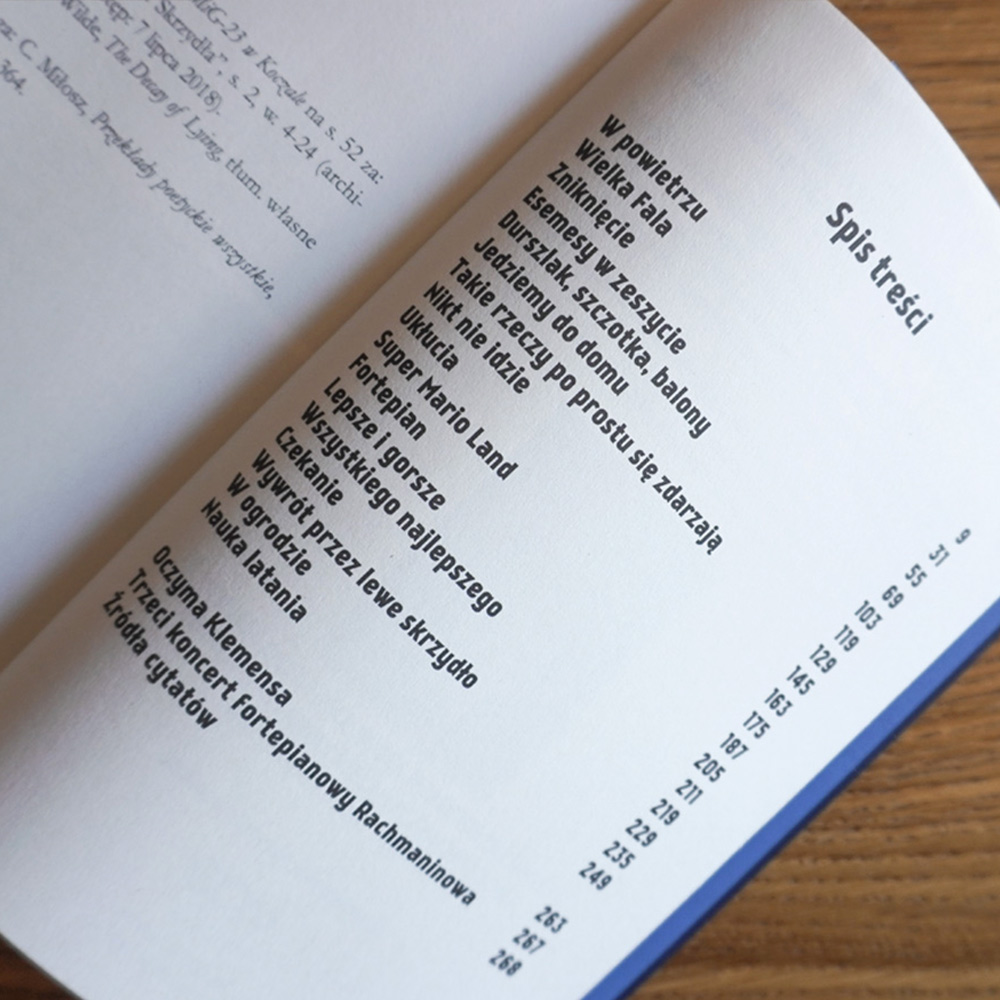 MiG-23 w Koczale na s. 52 za:
Skrzydła”, s. 2, w. 4-24 (archi-
7 lipca 2018).
Wilde, The Decay of Lying, tłum. własne
C. Miłosz, Przekłady poetyckie wszystkie,
364.
Spis treści
W powietrzu 9
Wielka Fala 31
Zniknięcie 55
Esemesy w zeszycie 69
Durszlak, szczotka, balony 103
Jedziemy do domu 119
Takie rzeczy po prostu się zdarzają 129
Nikt nie idzie 145
Ukłucia 163
Super Mario Land 175
Fortepian 187
Lepsze i gorsze 205
Wszystkiego najlepszego 211
Czekanie 219
Wywrót przez lewe skrzydło 229
W ogrodzie 235
Nauka latania 249
Oczyma Klemensa 263
Trzeci koncert fortepianowy Rachmaninowa 267
Źródła cytatów 268